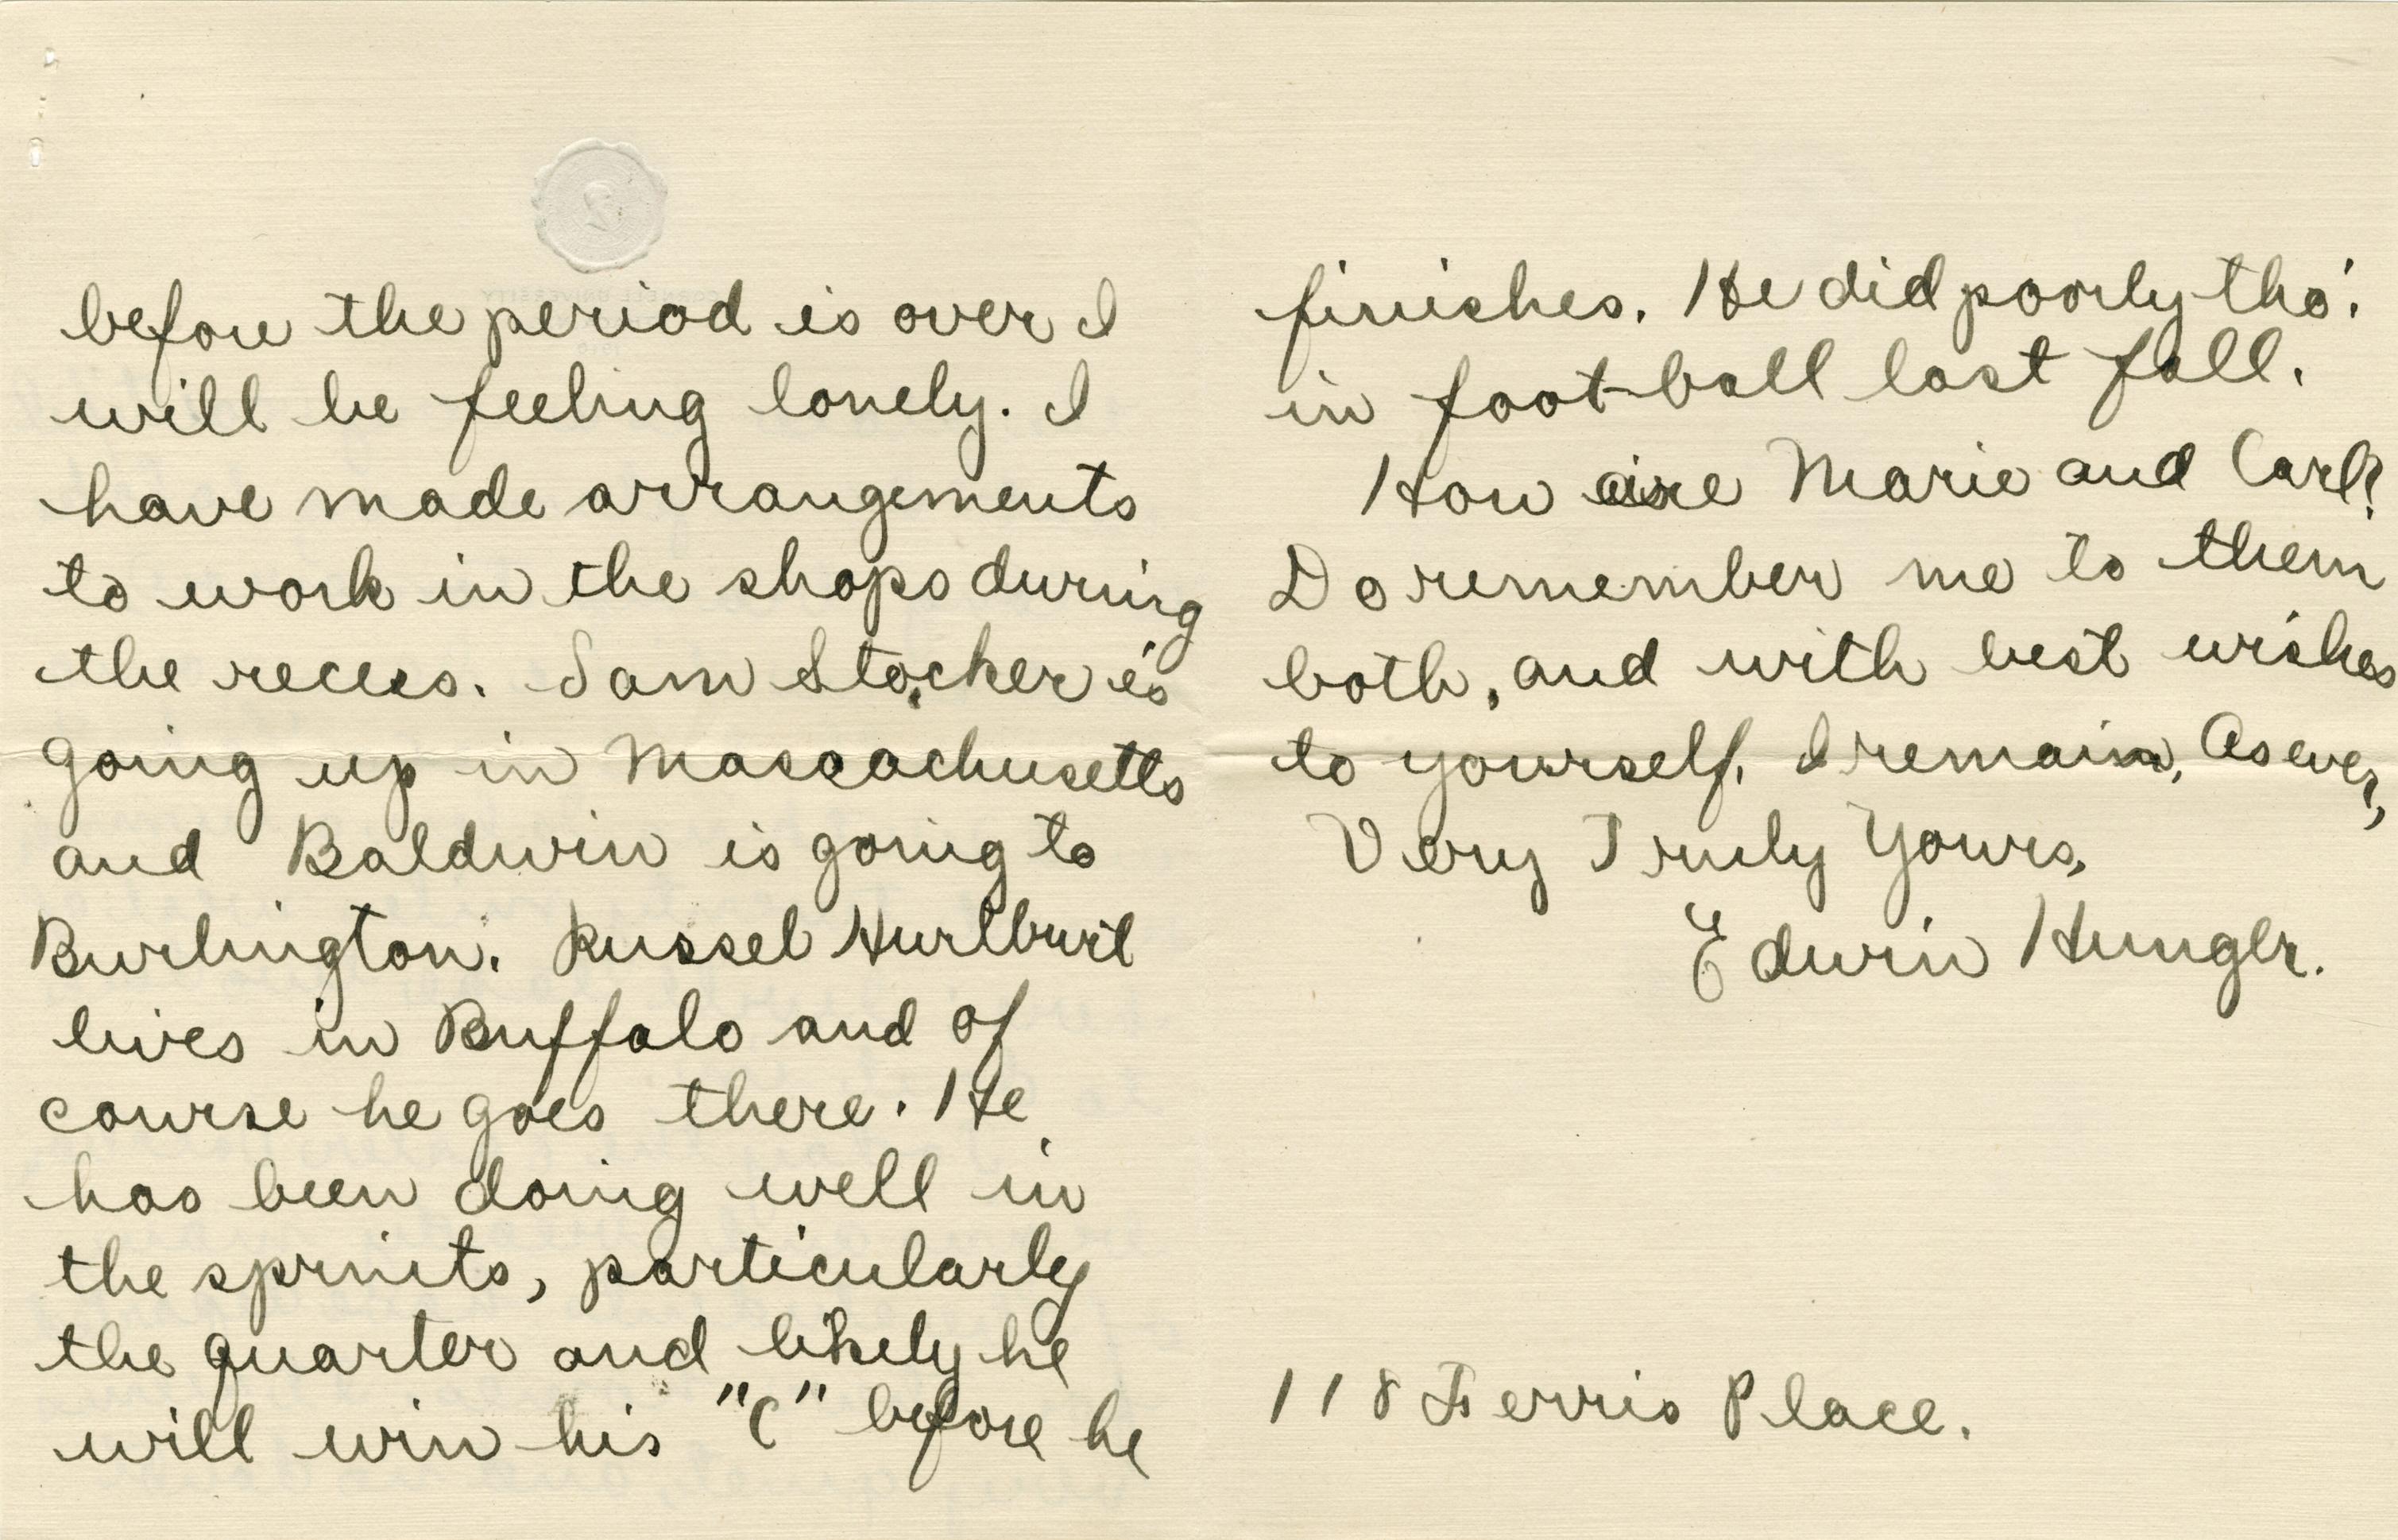 before the period is over I
will be feeling lonely. I
have made arrangements
to work in the shops during
the recess. Sam Stocker is
going up in Massachusetts
and Baldwin is going to
Burlington. Russel Hurlburt
lives in Buffalo and of
course he goes there. He
has been doing well in
the sprints, particularly
the quarter and likely he
will win his "C" before he
finishes. He did poorly tho'.
in foot-ball last fall.
How are Marie and Carl?
Do remember me to them
both, and with best wishes
to yourself, I remain, As ever,
Very Truly Yours,
Edwin Hungler.
118 Ferris Place.